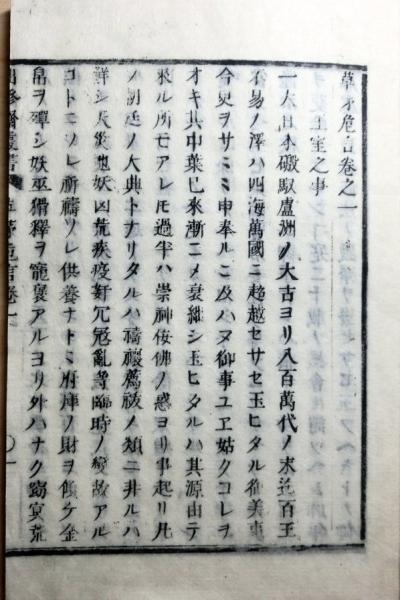 草茅危言卷之一
王室之事
一大日本磤馭盧洲ノ大古ヨリ八百萬代ノ末迄百王
不易ノ澤ハ四海萬國ニ超越セサセ玉ヒタル御美事
今更ヲサミミ申奉ルニ及ハヌ御事ユヱ姑クコレヲ
オキ其中葉已來漸ニメ衰維シ玉ヒタルハ其源由テ
來ル所モアレ𪜈過半ハ崇神佞佛ノ惑ヨリ事起リ凡
ノ朝廷ノ大典トナリタルハ禱禳薦祓ノ類ニ非ルハ
鮮シ天災地妖凶荒疾疫奸宄冦亂等臨時ノ變故アル
コトニソレ祈禱ソレ供養ナトミ府庫ノ財ヲ傾ケ金
帛ヲ殫シ妖巫猾釋ヲ寵褒アルヨリ外ハナク窮哀荒
草茅危言卷一